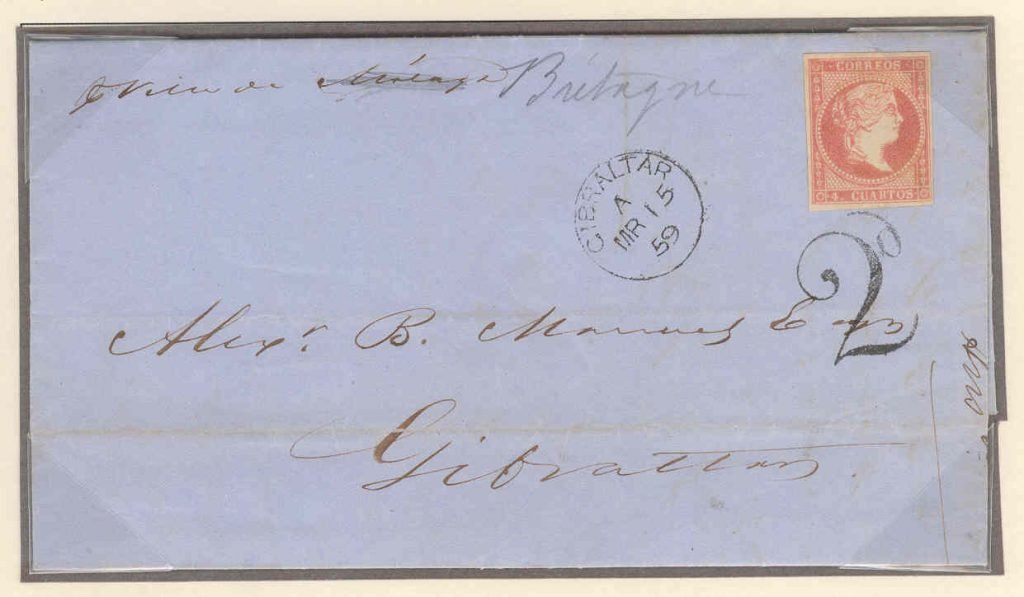 de Málaga Bretagne
CORREOS
4. CUARTOS
GIBRALTAR
A
MR 15
59
2
Alexr. B. Esqr
Gibraltar